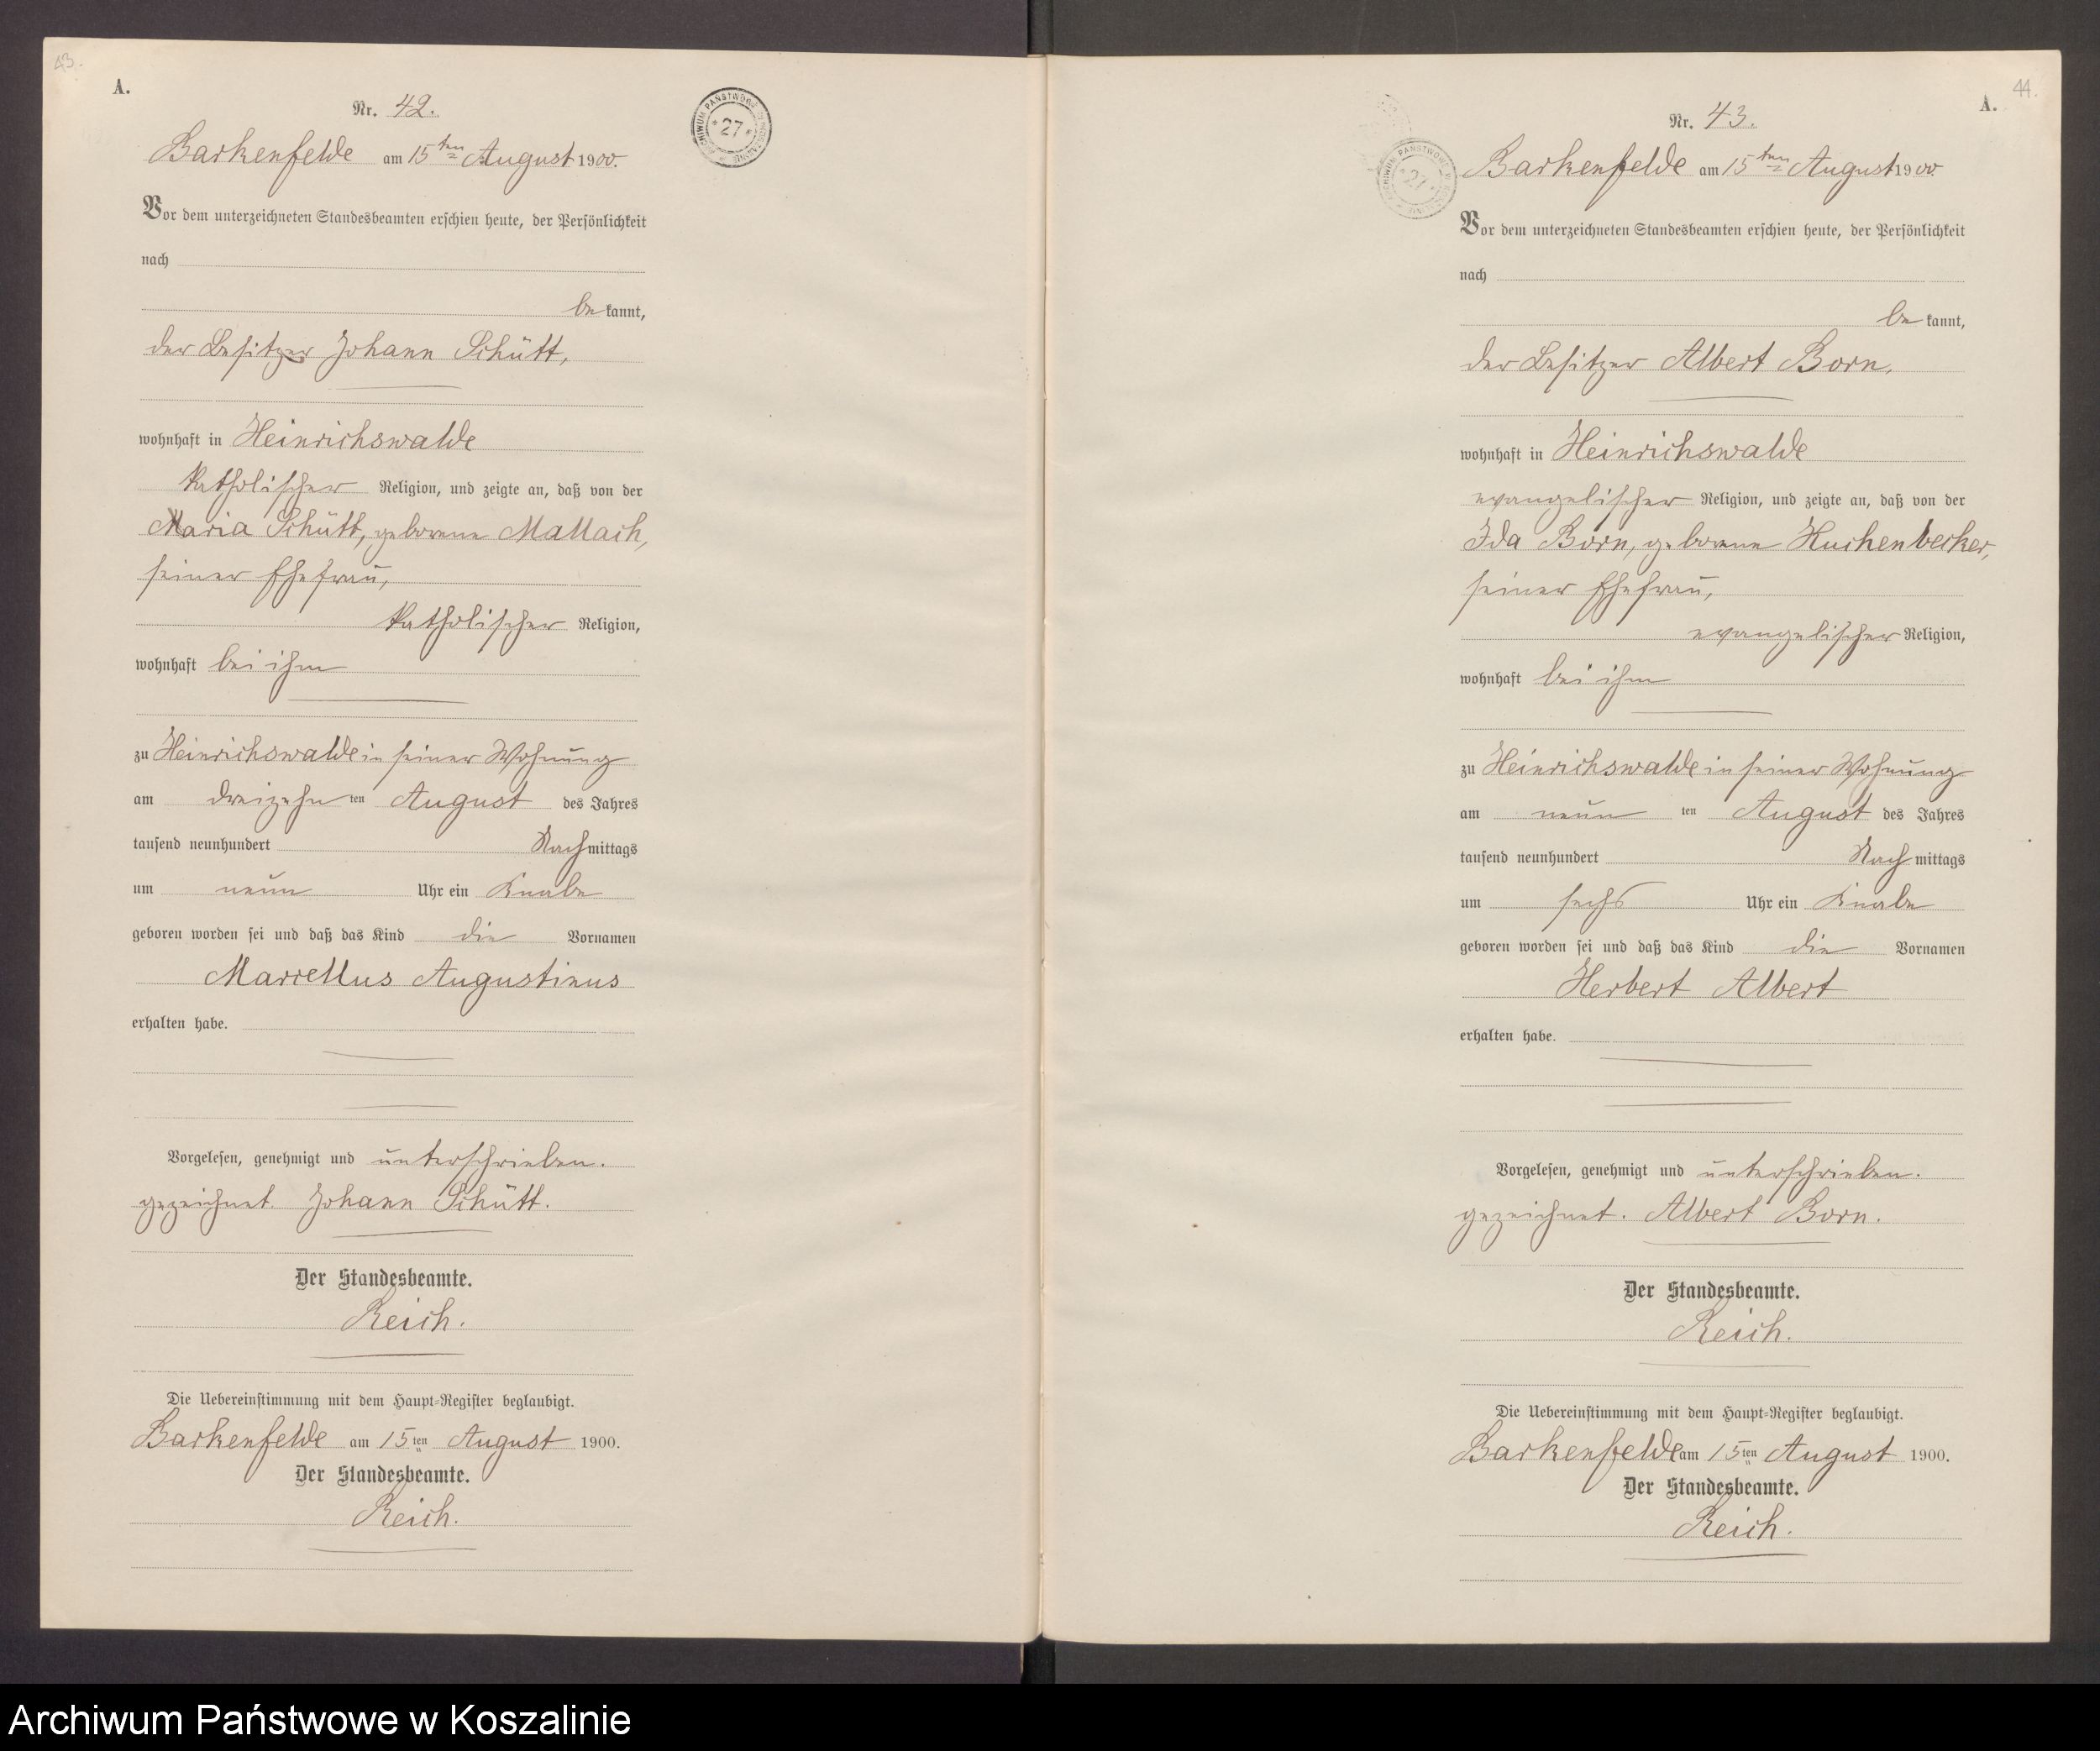 43.
A.
Nr. 42.
Barkenfelde am 15ten August 1900.
Vor dem unterzeichneten Standesbeamten erschien heute, der Persönlichkeit
nach
bekannt,
der Besitzer Johann Schütt,
wohnhaft in Heinrichswalde
katholischer Religion, und zeigte an, daß von der
Maria Schütt, geborene Mallach,
seiner Ehefrau,
katholischer Religion,
wohnhaft bei ihm
zu Heinrichswalde in seiner Wohnung
am dreizehnten August des Jahres
tausend neunhundert Nachmittags
um neun Uhr ein Knabe
geboren worden sei und daß das Kind die Vornamen
Marcellus Augustinus
erhalten habe.
Vorgelesen, genehmigt und unterschrieben.
gezeichnet. Johann Schütt.
Der Standesbeamte.
Reich.
Die Uebereinstimmung mit dem Haupt-Register beglaubigt.
Barkenfelde am 15ten August 1900.
Der Standesbeamte.
Reich.
ARCHIWUM PAŃSTWOWE W KOSZALINIE
* 27 *
44.
A.
Nr. 43.
Barkenfelde am 15ten August 1900.
Vor dem unterzeichneten Standesbeamten erschien heute, der Persönlichkeit
nach
bekannt,
der Besitzer Albert Born,
wohnhaft in Heinrichswalde
evangelischer Religion, und zeigte an, daß von der
Ida Born, geborene Kuchenbecker,
seiner Ehefrau,
evangelischer Religion,
wohnhaft bei ihm
zu Heinrichswalde in seiner Wohnung
am neunten August des Jahres
tausend neunhundert Nachmittags
um sechs Uhr ein Knabe
geboren worden sei und daß das Kind die Vornamen
Herbert Albert
erhalten habe.
Vorgelesen, genehmigt und unterschrieben.
gezeichnet. Albert Born.
Der Standesbeamte.
Reich.
Die Uebereinstimmung mit dem Haupt-Register beglaubigt.
Barkenfelde am 15ten August 1900.
Der Standesbeamte.
Reich.
Archiwum Państwowe w Koszalinie